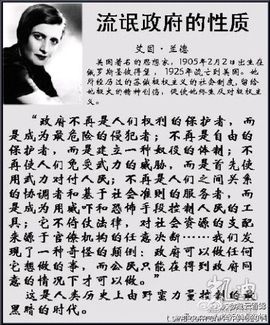 流氓政府的性质
艾因·兰德
美国著名的思想家，1905年2月2日出生在
俄罗斯圣彼得堡，1925年流亡到美国。她
所经历过的苏俄极权主义的社会制度，留给
她极大的精神创伤，促使她终生反对极权主
义。
“政府不再是人们权利的保护者，而
是成为最危险的侵犯者；不再是自由的
保护者，而是建立一种奴役的体制；不
再使人们免受武力的威胁，而是首先使
用武力对付人民；不再是人们之间关系
的协调者和基于社会准则的服务者，而
是成为用威吓和恐怖手段控制人民的工
具；它不倚仗法律，对社会资源的支配
来源于官僚机构的任意决断……我们发
现了一种奇怪的颠倒：政府可以做任何
它想做的事，而公民只能在得到政府同
意的情况下才可以做。”
这是人类历史上由野蛮力量控制的最
黑暗的时代。